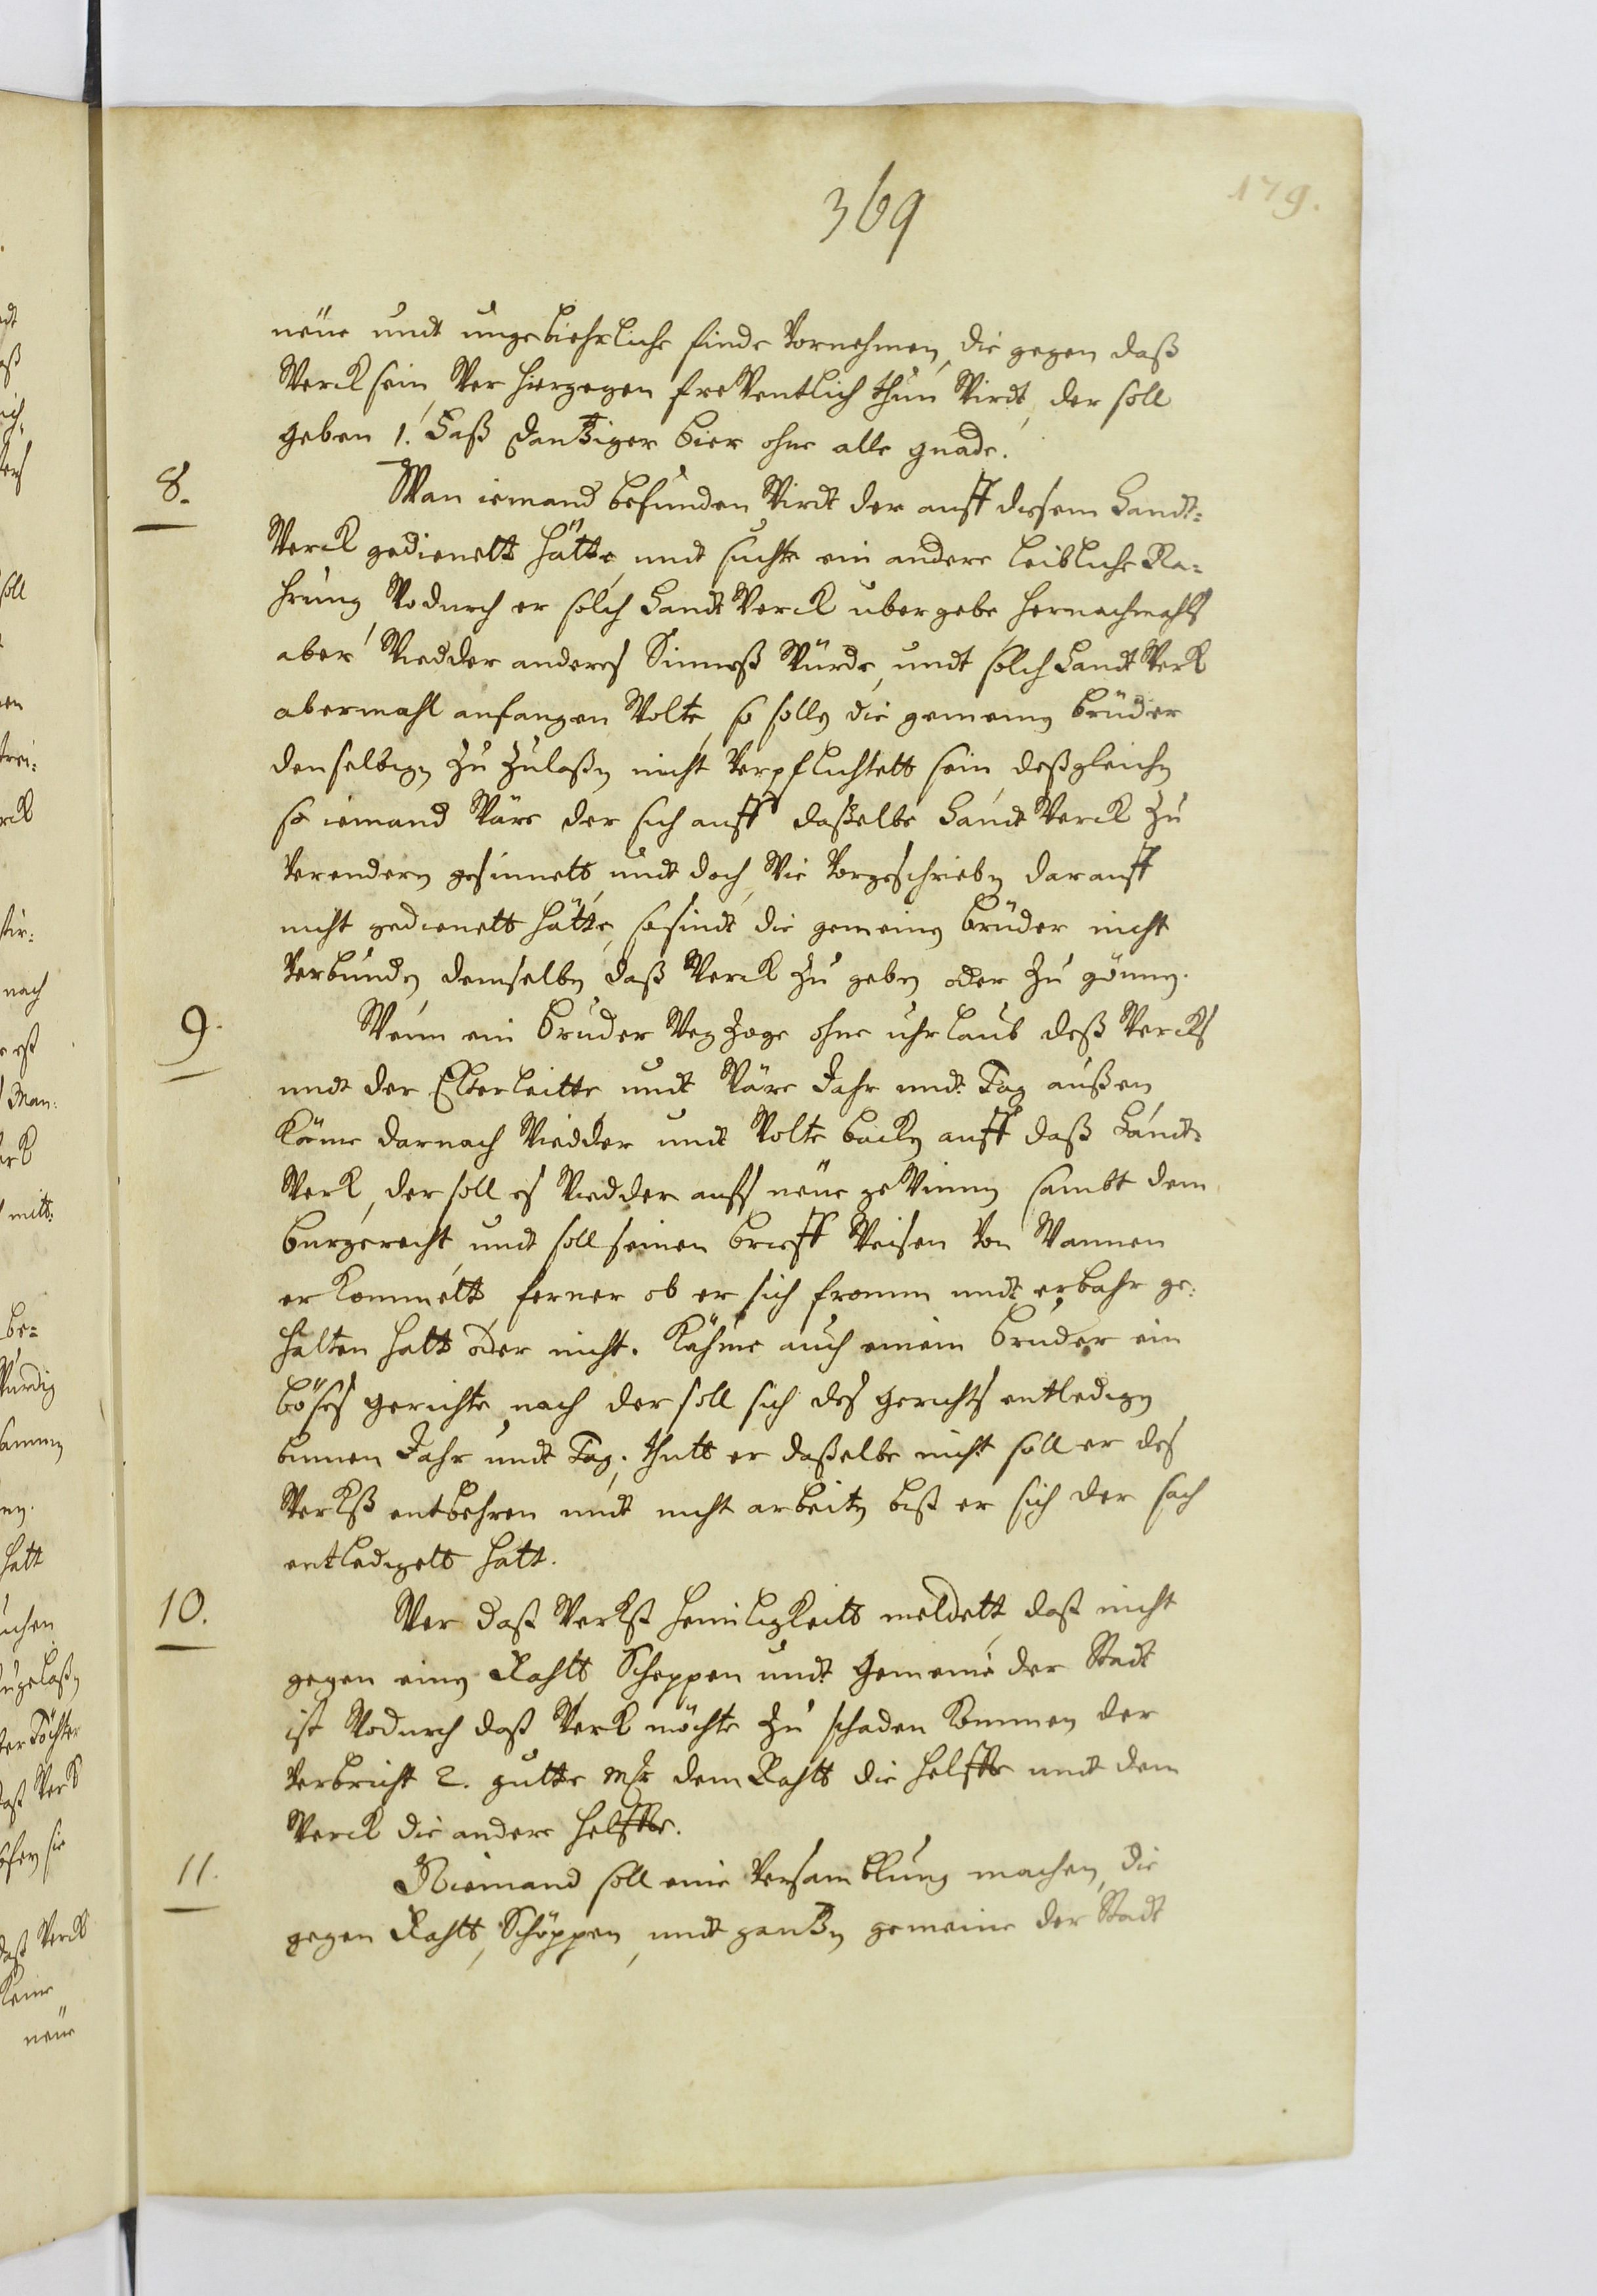 369
179.
neüe undt ungebiehrliche finde vornehmen, die gegen daß
Werck sein, Wer hiergegen freventlich thun Wirdt, der soll
geben 1. Faß Dantziger bier ohne alle gnade.
8. Wan iemand befunden Wirdt der auff disem Handt=
Werck gedienett hätte, undt suchte ein andere leibliche Na=
hrung Wodurch er solch Handt Werck ubergebe hernachmahls
aber Wiedder anderes Sinneß Würde, undt solch Handt Werk
abermahl anfangen Wolte, so solln die gemeinen brüder
denselbign zu zulaßn nicht verpflichtett sein, deßgleichn
so iemand Wäre der sich auff daßelbe Handt Werck zu
verendern gesinnett, undt doch, Wie vorgeschriebn darauff
nicht gedienett hätte, so sindt die gemeinen brüder nicht
verbunden demselbn daß Werck zu geben oder zu gönnen.
9. Wenn ein bruder Weg zoge ohne uhrlaub deß Wercks
undt der Elterleutte undt Wäre Jahr undt Tag außen,
käme darnach Wiedder undt Wolte backen auff daß Handt=
Werk, der soll es Wiedder auffs neüe geWinnen sambt dem
burgerecht, undt soll seinen brieff Weisen von Wannen
er kommett ferner ob er sich fromm undt erbahr ge=
halten hatt oder nicht. Kähme auch einem bruder ein
böses gerichte nach der soll sich des gerichts entledign
binnen Jahr undt Tag, thutt er daßelbe nicht soll er des
Werckß entbehren undt nicht arbeitn biß er sich der sach
entledigett hatt.
10. Wer daß Werckß heimligkeitt meldett, daß nicht
gegen einen Rahtt, Scheppen undt Gemeine der Stadt
ist Wodurch daß Werk möchte zu schaden kommen, der
verbricht 2. gutte mk dem Rahtt die helffte undt dem
Werck die andere helffte.
11. Niemand soll eine versamblung machen, die
gegen Rahtt, Schöppen, undt gantzn gemeine der Stadt